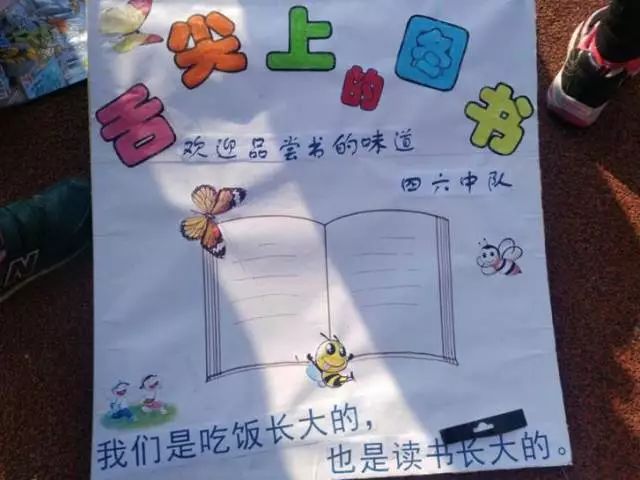 舌尖上的图书
欢迎品尝书的味道
四六中队
我们是吃饭长大的，
也是读书长大的。
N